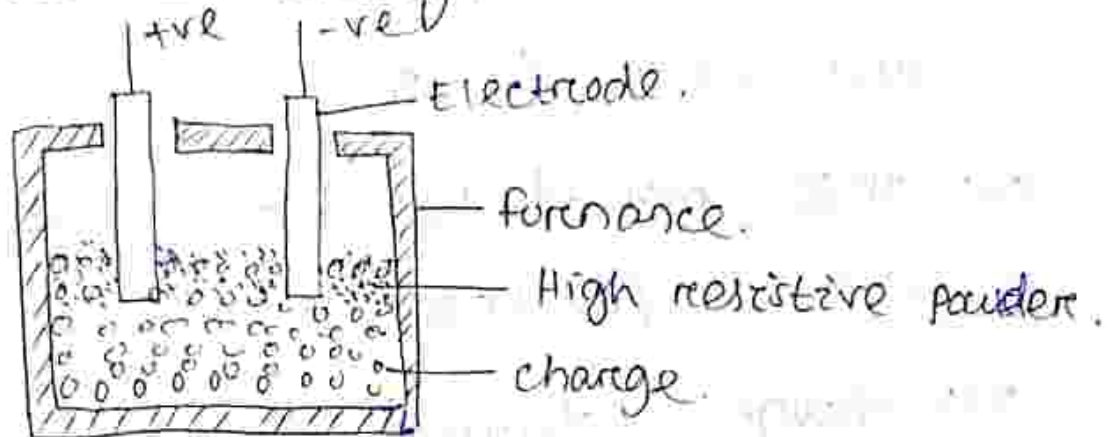 +ve -ve
Electrode.
furnance.
High resistive powder.
charge.